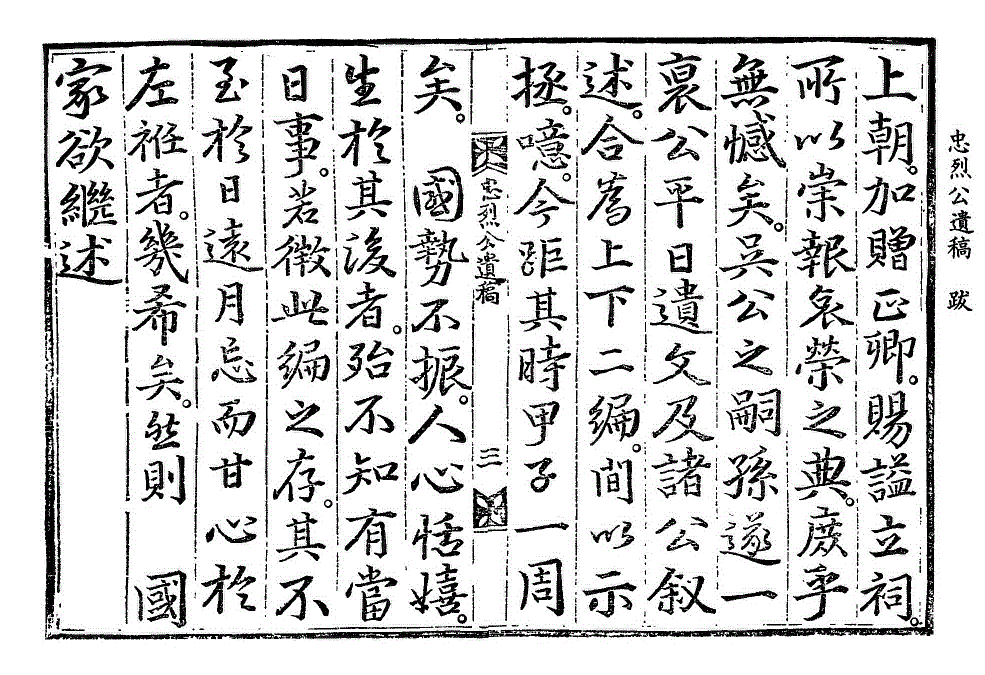 忠烈公遺稿 跋
上朝。加贈正卿。賜謚立祠。
所以崇報哀榮之典。庶乎
無憾矣。吳公之嗣孫遂一
裒公平日遺文及諸公叙
述。合爲上下二編。間以示
拯。噫。今距其時甲子一周
忠烈公遺稿 三
矣。 國勢不振。人心恬嬉。
生於其後者。殆不知有當
日事。若微此編之存。其不
至於日遠月忘而甘心於
左衽者。幾希矣。然則 國
家欲繼述